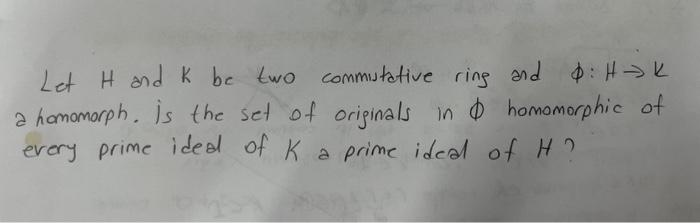 Let H and K be two commutative ring and ϕ: H → K
a homomorph. İs the set of originals in ϕ homomorphic of
every prime ideal of K a prime ideal of H?